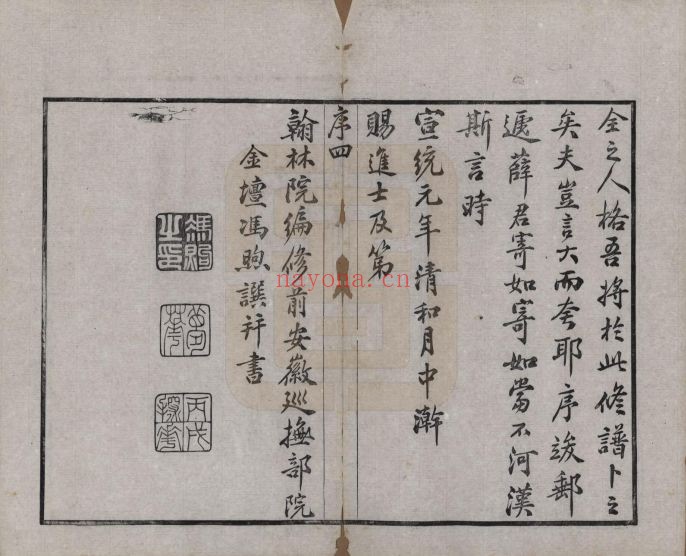 全之人格吾将於此修譜卜之
矣夫豈言大而夸耶序竣郵
遞薛君寄如寄如當不河漢
斯言時
宣統元年清和月中澣
賜進士及第
序四
翰林院編修前安徽巡撫部院
金壇馮煦譔并書
馮煦之印
夢華
丙戌探花
nayona.cn